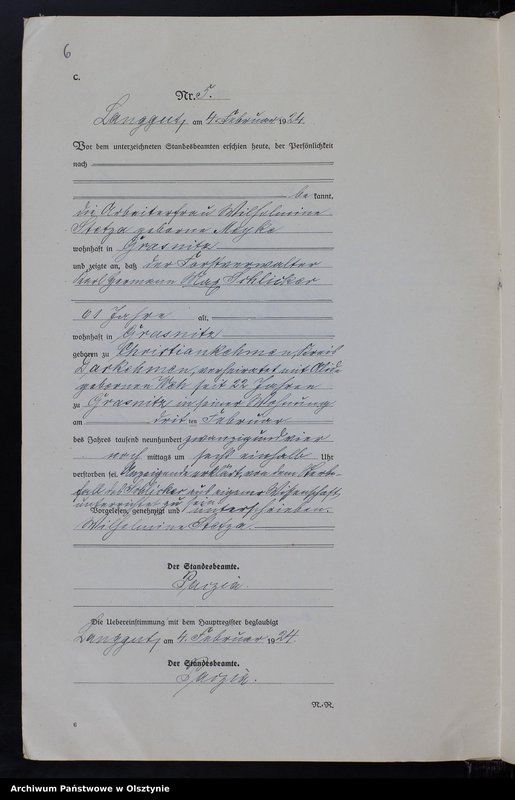 6
C.
Nr. 5.
Langgut, am 4. Februar 1924.
Vor dem unterzeichneten Standesbeamten erschien heute, der Persönlichkeit
nach
be kannt,
die Arbeiterfrau Wilhelmine
geborne
wohnhaft in Grasnitz
und zeigte an, daß der Forstverwalter
Karl Hermann Max Schlicker
61 Jahre alt,
wohnhaft in Grasnitz
geboren zu Kreis
Darkehmen, verheiratet mit
geborenen seit 22 Jahren
zu Grasnitz in seiner Wohnung
am dritten Februar
des Jahres tausend neunhundert zwanzigundvier
nach mittags um sechs einhalb Uhr
verstorben sei. Anzeigende erklärt, von dem Sterbe-
falle des Schlicker aus eigener Wissenschaft
unterrichtet zu sein
Vorgelesen, genehmigt und unterschrieben.
Wilhelmine
Der Standesbeamte.
Die Uebereinstimmung mit dem Hauptregister beglaubigt
Langgut, am 4. Februar 1924.
Der Standesbeamte.
N.-R.
6
Archiwum Państwowe w Olsztynie